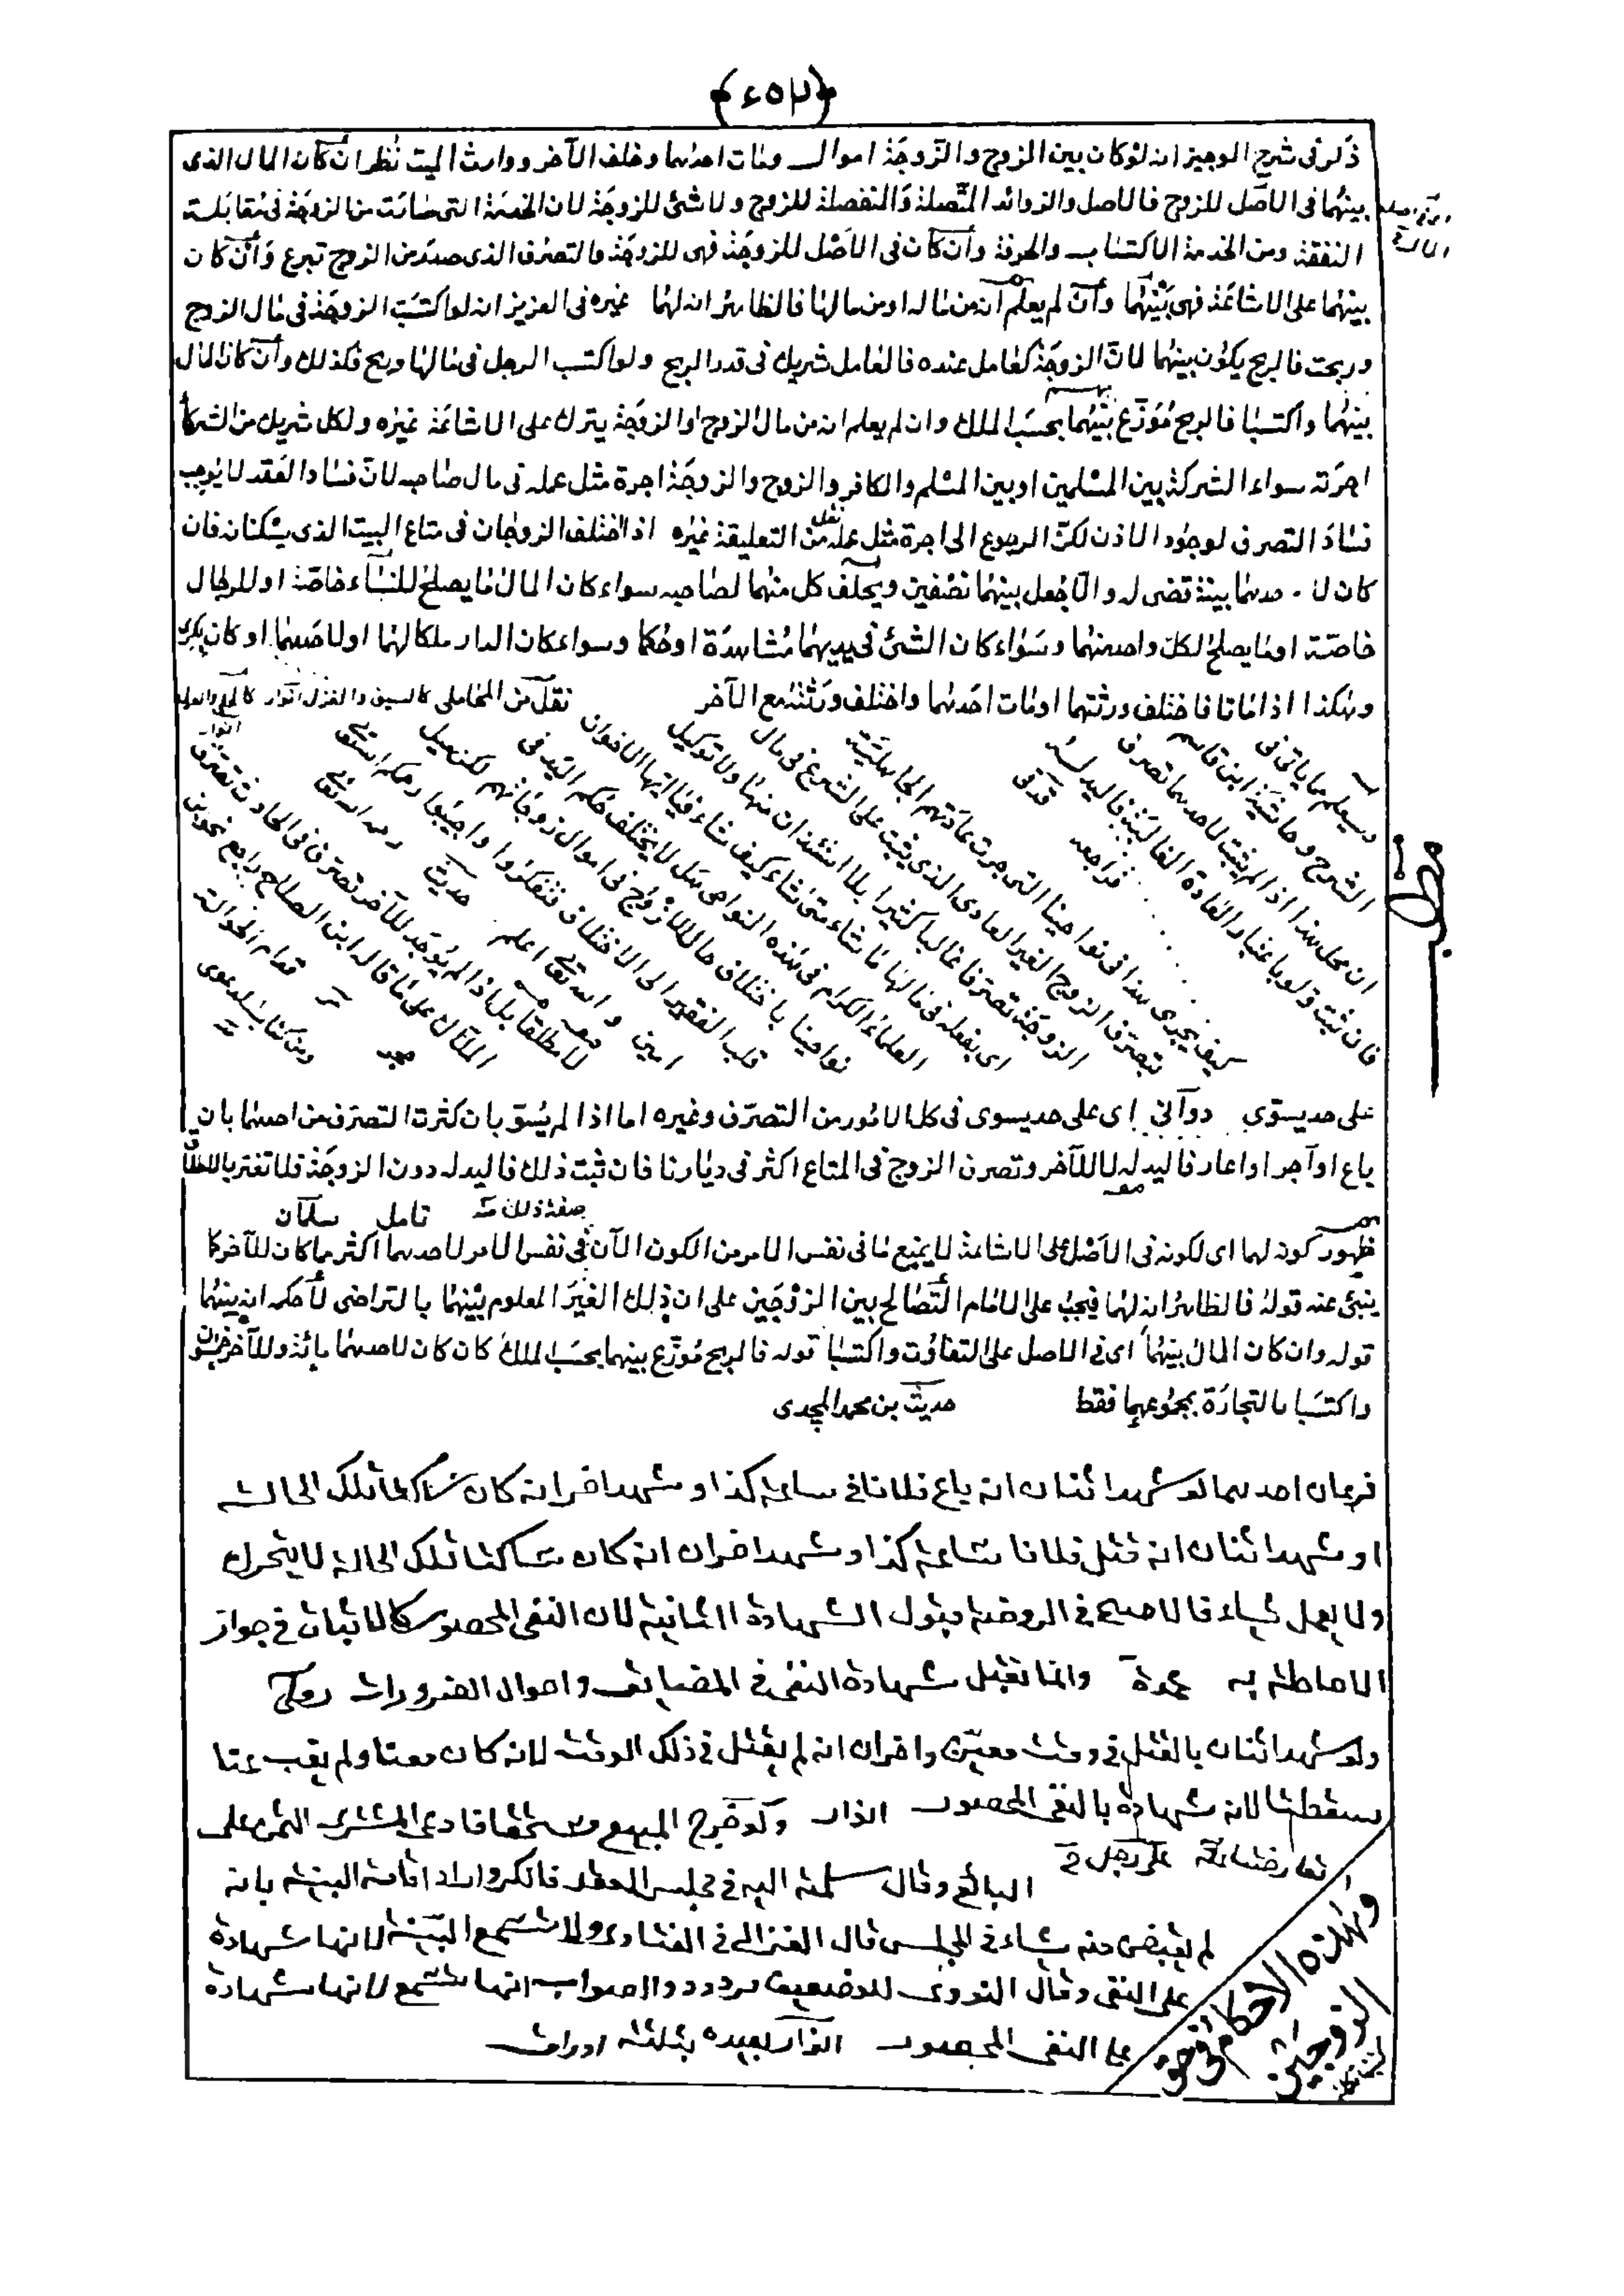 ﴿٤٥٣﴾
ذكر فى شرح الوجيز انه لو كان بين الزوج والزوجة اموال ومات احدهما وخلف الآخر ووارث الميت نظر ان كان المال الذى
بينهما فى الاصل للزوج فالاصل والزوائد المتصلة والمنفصلة للزوج ولا شئ للزوجة لان الخدمة التى صارت من الزوجة فى مقابلة
النفقة ومن الخدمة الاكتساب والحرفة وان كان فى الاصل للزوجة فهى للزوجة والتصرف الذى صدر من الزوج تبرع وان كان
بينهما على الاشاعة فهى بينهما وان لم يعلم انه من ماله او من مالها فالظاهر انه لهما غيره فى العزيز انه لو اكتسبت الزوجة فى مال الزوج
وربحت فالربح يكون بينهما لان الزوجة كعامل عنده فالعامل شريك فى قدر الربح ولو اكتسب الرجل فى مالها وربح فكذلك وان كان المال
بينهما واكتسبا فالربح موزع بينهما بحسب الملك وان لم يعلم انه من مال الزوج او الزوجة يترك على الاشاعة غيره ولكل شريك من الشركاء
اجرته سواء الشركة بين المسلمين او بين المسلم والكافر والزوج والزوجة اجرة مثل عمله فى مال صاحبه لان فساد العقد لا يوجب
فساد التصرف لوجود الاذن لكن الرجوع الى اجرة مثل عمله نقل من التعليقة غيره اذا اختلف الزوجان فى متاع البيت الذى يسكنانه فان
كان لاحدهما بينة قضى له والا جعل بينهما نصفين ويحلف كل منهما لصاحبه سواء كان المال ما يصلح للنساء خاصة او للرجال
خاصة او ما يصلح لكل واحد منهما وسواء كان الشئ فى يديهما مشاهدة او حكما وسواء كان الدار ملكا لهما او لاحدهما او كان بكرى
وهكذا اذا ماتا فاختلف ورثتهما او مات احدهما واختلف ورثته مع الآخر نقل من المحاملى كالسيف والغزل انوار
الشرح وحاشية ابن قاسم
ان محل هذا اذا لم يثبت لاحدهما تصرف
فان ثبت ولو باعتبار العادة الغالبية فاليد له
فراجعه قدقى
كيف يجرى هذا فى نواحينا التى جرت عادتهم الجاهلية
بتصرف الزوج الغير العادى الذى يثبت على الشرع فى مال
الزوجة تصرفا غالبا كثيرا بلا استئذان منها ولا توكيل
اى يفعله فى مالها ما شاء متى شاء كيف شاء فيا ايها الاخوان
العلماء الكرام فى هذه النواحى هل لا يختلف حكم اليد فى
نواحينا باختلاف حال الازواج فى اموال زوجاتهم لكن يميل
قلب الفقير الى الاختلاف فتفكروا واجيبوا رحمكم الله تعالى
امين والله تعالى اعلم حديث رحمه الله تعالى
لا مطلقا بل اذا لم يوجد للآخر تصرف فى الحادث تصرف
الملاك على ما قاله ابن الصلاح راجع
على حد يستوى دوآنى اى على حد يسوى فى كل الامور من التصرف وغيره اما اذا لم يسو بان كثرت التصرف من احدهما بان
باع او آجر او اعار فاليد له لا للآخر وتصرف الزوج فى المتاع اكثر فى ديارنا فان ثبت ذلك فاليد له دون الزوجة فلا تغتر بالاطلاق
تامل سلمان
ظهور كونه لهما اى لكونه فى الاصل على الاشاعة لا يمنع ما فى نفس الامر من الكون الآن فى نفس الامر لاحدهما اكثر مما كان للآخر كما
ينبئ عنه قوله فالظاهر انه لهما فيجب على الامام التصالح بين الزوجين على ان ذلك الغير المعلوم بينهما بالتراضى لا حكم انه بينهما
قوله وان كان المال بينهما اى فى الاصل على التفاوت واكتسبا قوله فالربح موزع بينهما بحسب الملك كان كان لاحدهما مائة وللآخر
واكتسبا بالتجارة بمجموعهما فقط حديث بن محمد المجدى
فرعان احدهما لو شهد اثنان انه باع فلانا فى ساعة كذا وشهد اخران انه كان ساكتا تلك الحالة
او شهد اثنان انه قتل فلانا ساعة كذا وشهد اخران انه كان ساكنا تلك الحالة لا يتحرك
ولا يعمل شياء فالاصح فى الروضة قبول الشهادة الثانية لان النفى المحصور كالاثبات فى جواز
الاحاطة به عمدة وانما تقبل شهادة النفى فى المضايق واحوال الضرورات
ولو شهد اثنان بالقتل فى وقت معين واخران انه لم يقتل فى ذلك الوقت لانه كان معنا ولم يغب عنا
سقطتا لانه شهادة بالنفى المحصور انوار ولو خرج المبيع مستحقا فادعى المشترى الثمن على
البايع وقال سلمته اليه فى مجلس العقد فانكر واراد اقامة البينة بانه
لم يقبض منه شياء فى المجلس قال الغزالى فى الفتاوى ولا تسمع البينة لانها شهادة
على النفى وقال النووى للضعيف مردود والصواب انها تسمع لانها شهادة
على النفى المحصور انوار بعيده بثلثة اوراق
وهذه الاحكام فى حق
الزوجين